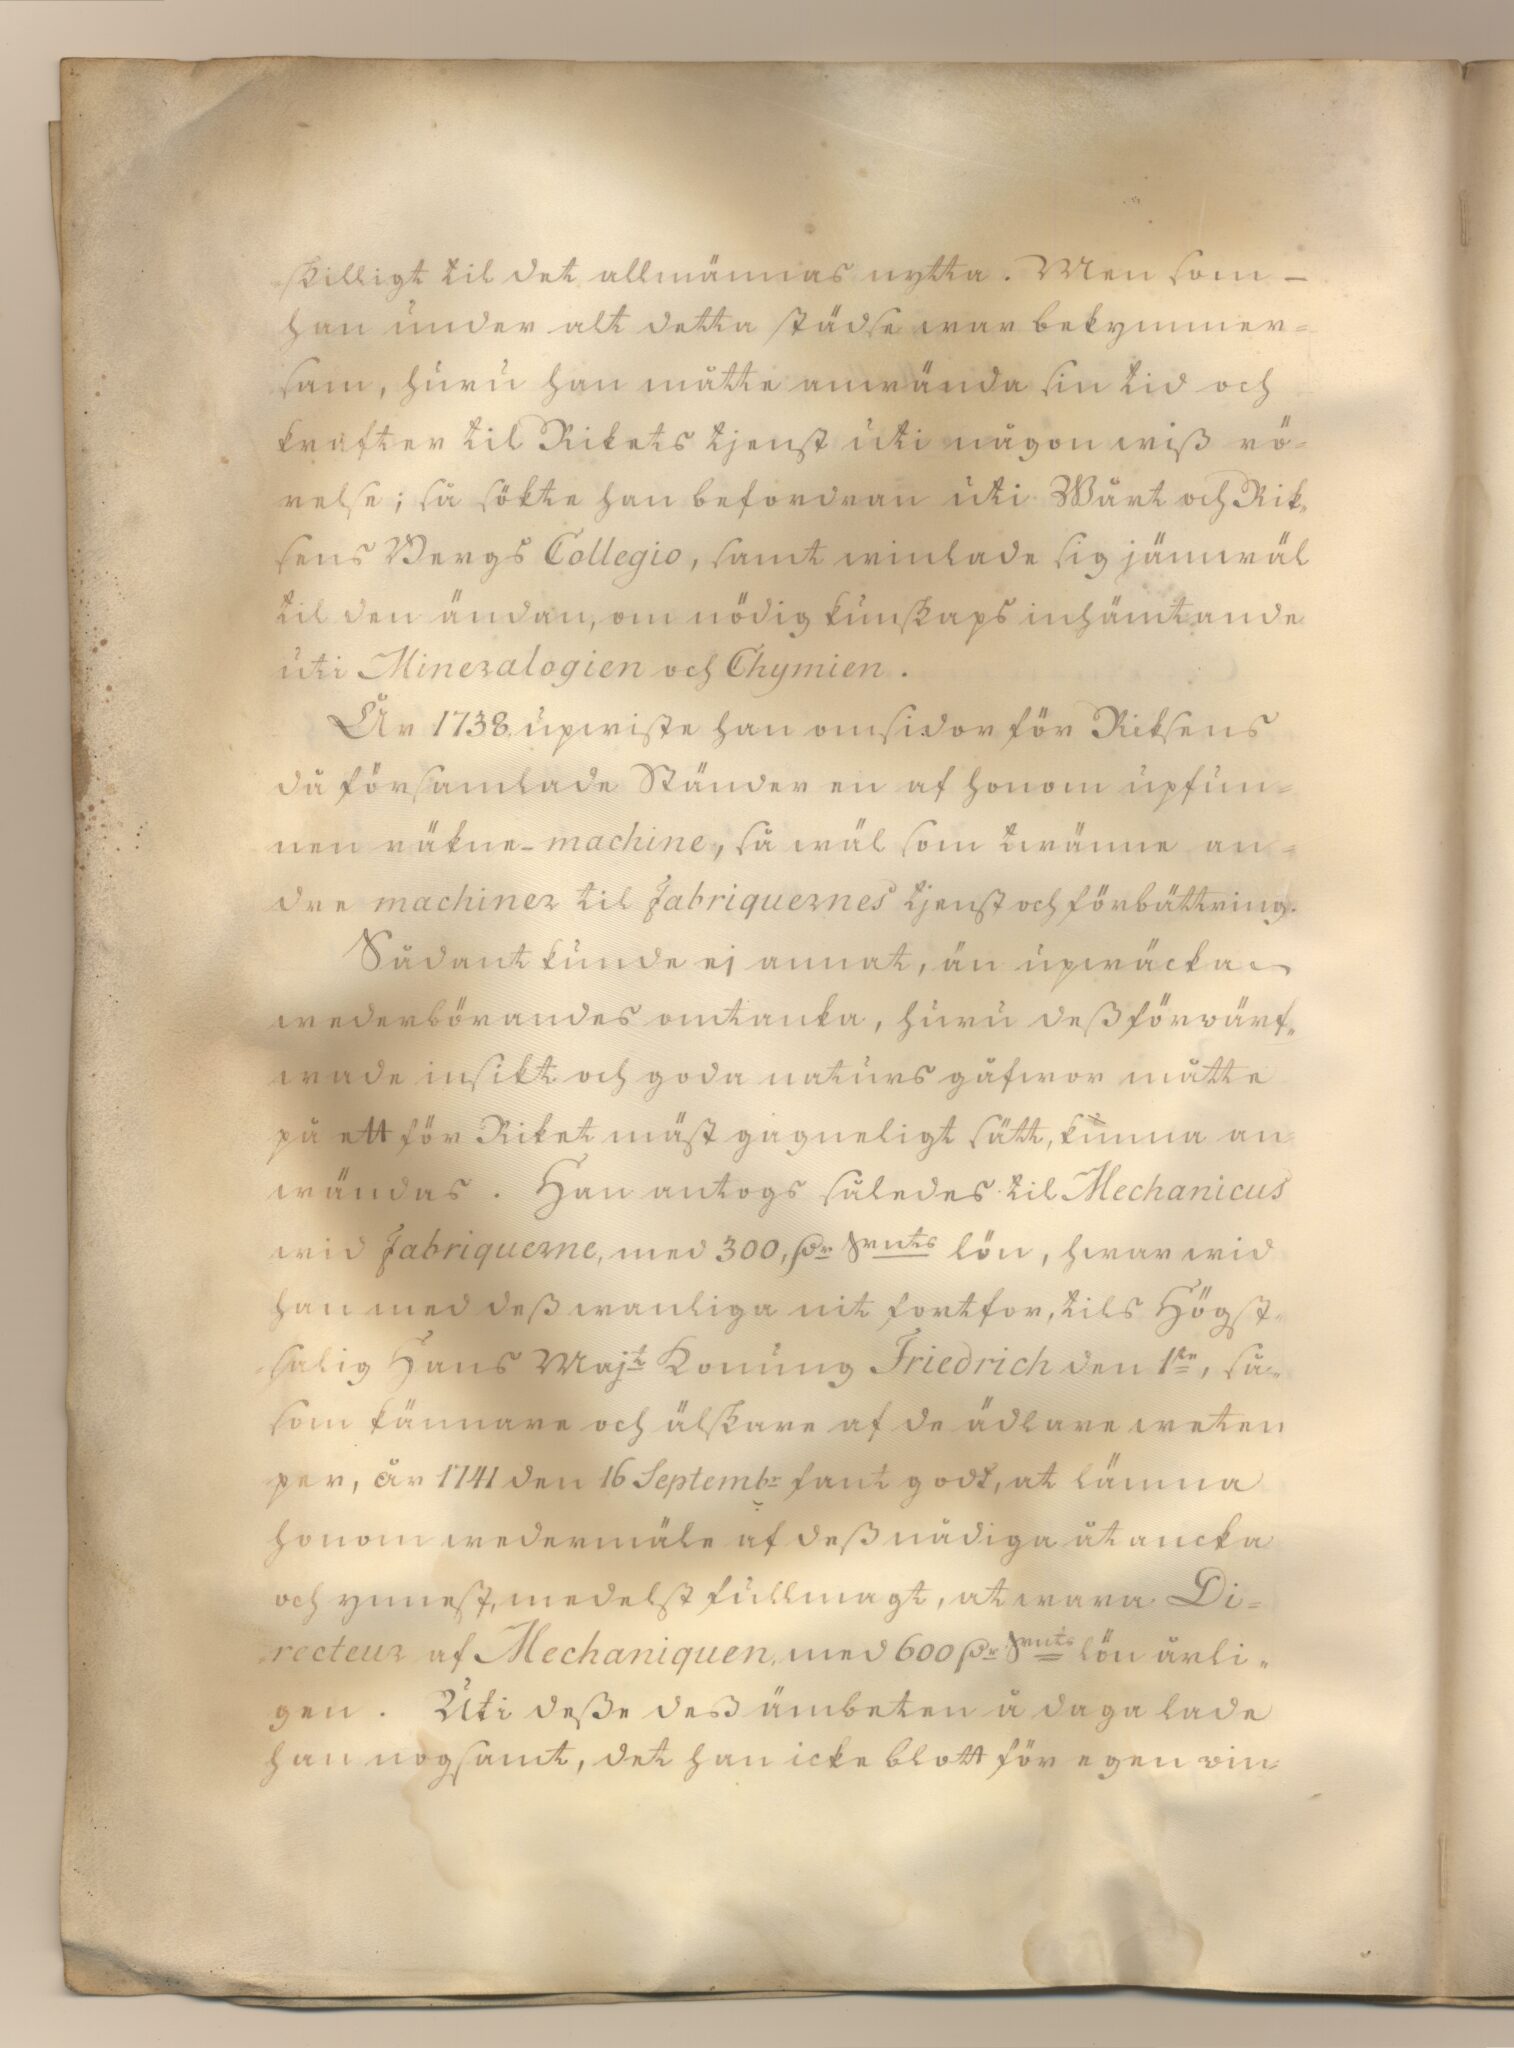 skilligt til det allmännas nytta. Men som –
han under alt detta städse war bekymmer=
sam, huru han måtte anwända sin tid och
krafter til Rikets tjenst uti någon wiß rö=
relse; så sökte han befordran uti Wårt och Rik=
sens Bergs Collegio, samt winlade sig jämwäl
til den ändan, om nödig kunskaps inhämtande
uti Mineralogien och Chymien.
År 1738 upwiste han omsidor för Riksens
då församlade Ständer en af honom upfun=
nen räkne-machine, så wäl som twänne an=
dre machiner til fabriquernes tjenst och förbättring.
Sådant kunde ej annat, än upwäcka
wederbörandes omtanka, huru deß förwärf=
wade insikt och goda naturs gåfwor måtte
på ett för Riket mäst gagneligt sätt, kunna an
wändas. Han antogs således til Mechanicus
wid fabriquerne, med 300, Dr Smts lön, hwar wid
han med deß wanliga nit fortfor, tils Högst=
salig Hans Majt Konung Friedrich den 1ste, så=
som kännare och älskare af de ädlare weten
per, år 1741 den 16 Septembr fant godt, at lämna
honom wedermäle af deß nådiga åtancka
och ynnest, medelst fullmagt, at wara Di=
recteur af Mechaniquen, med 600 Dr Smts lön årli=
gen. Uti deße deß ämbeten å daga lade
han nogsamt, det han icke blott för egen win=